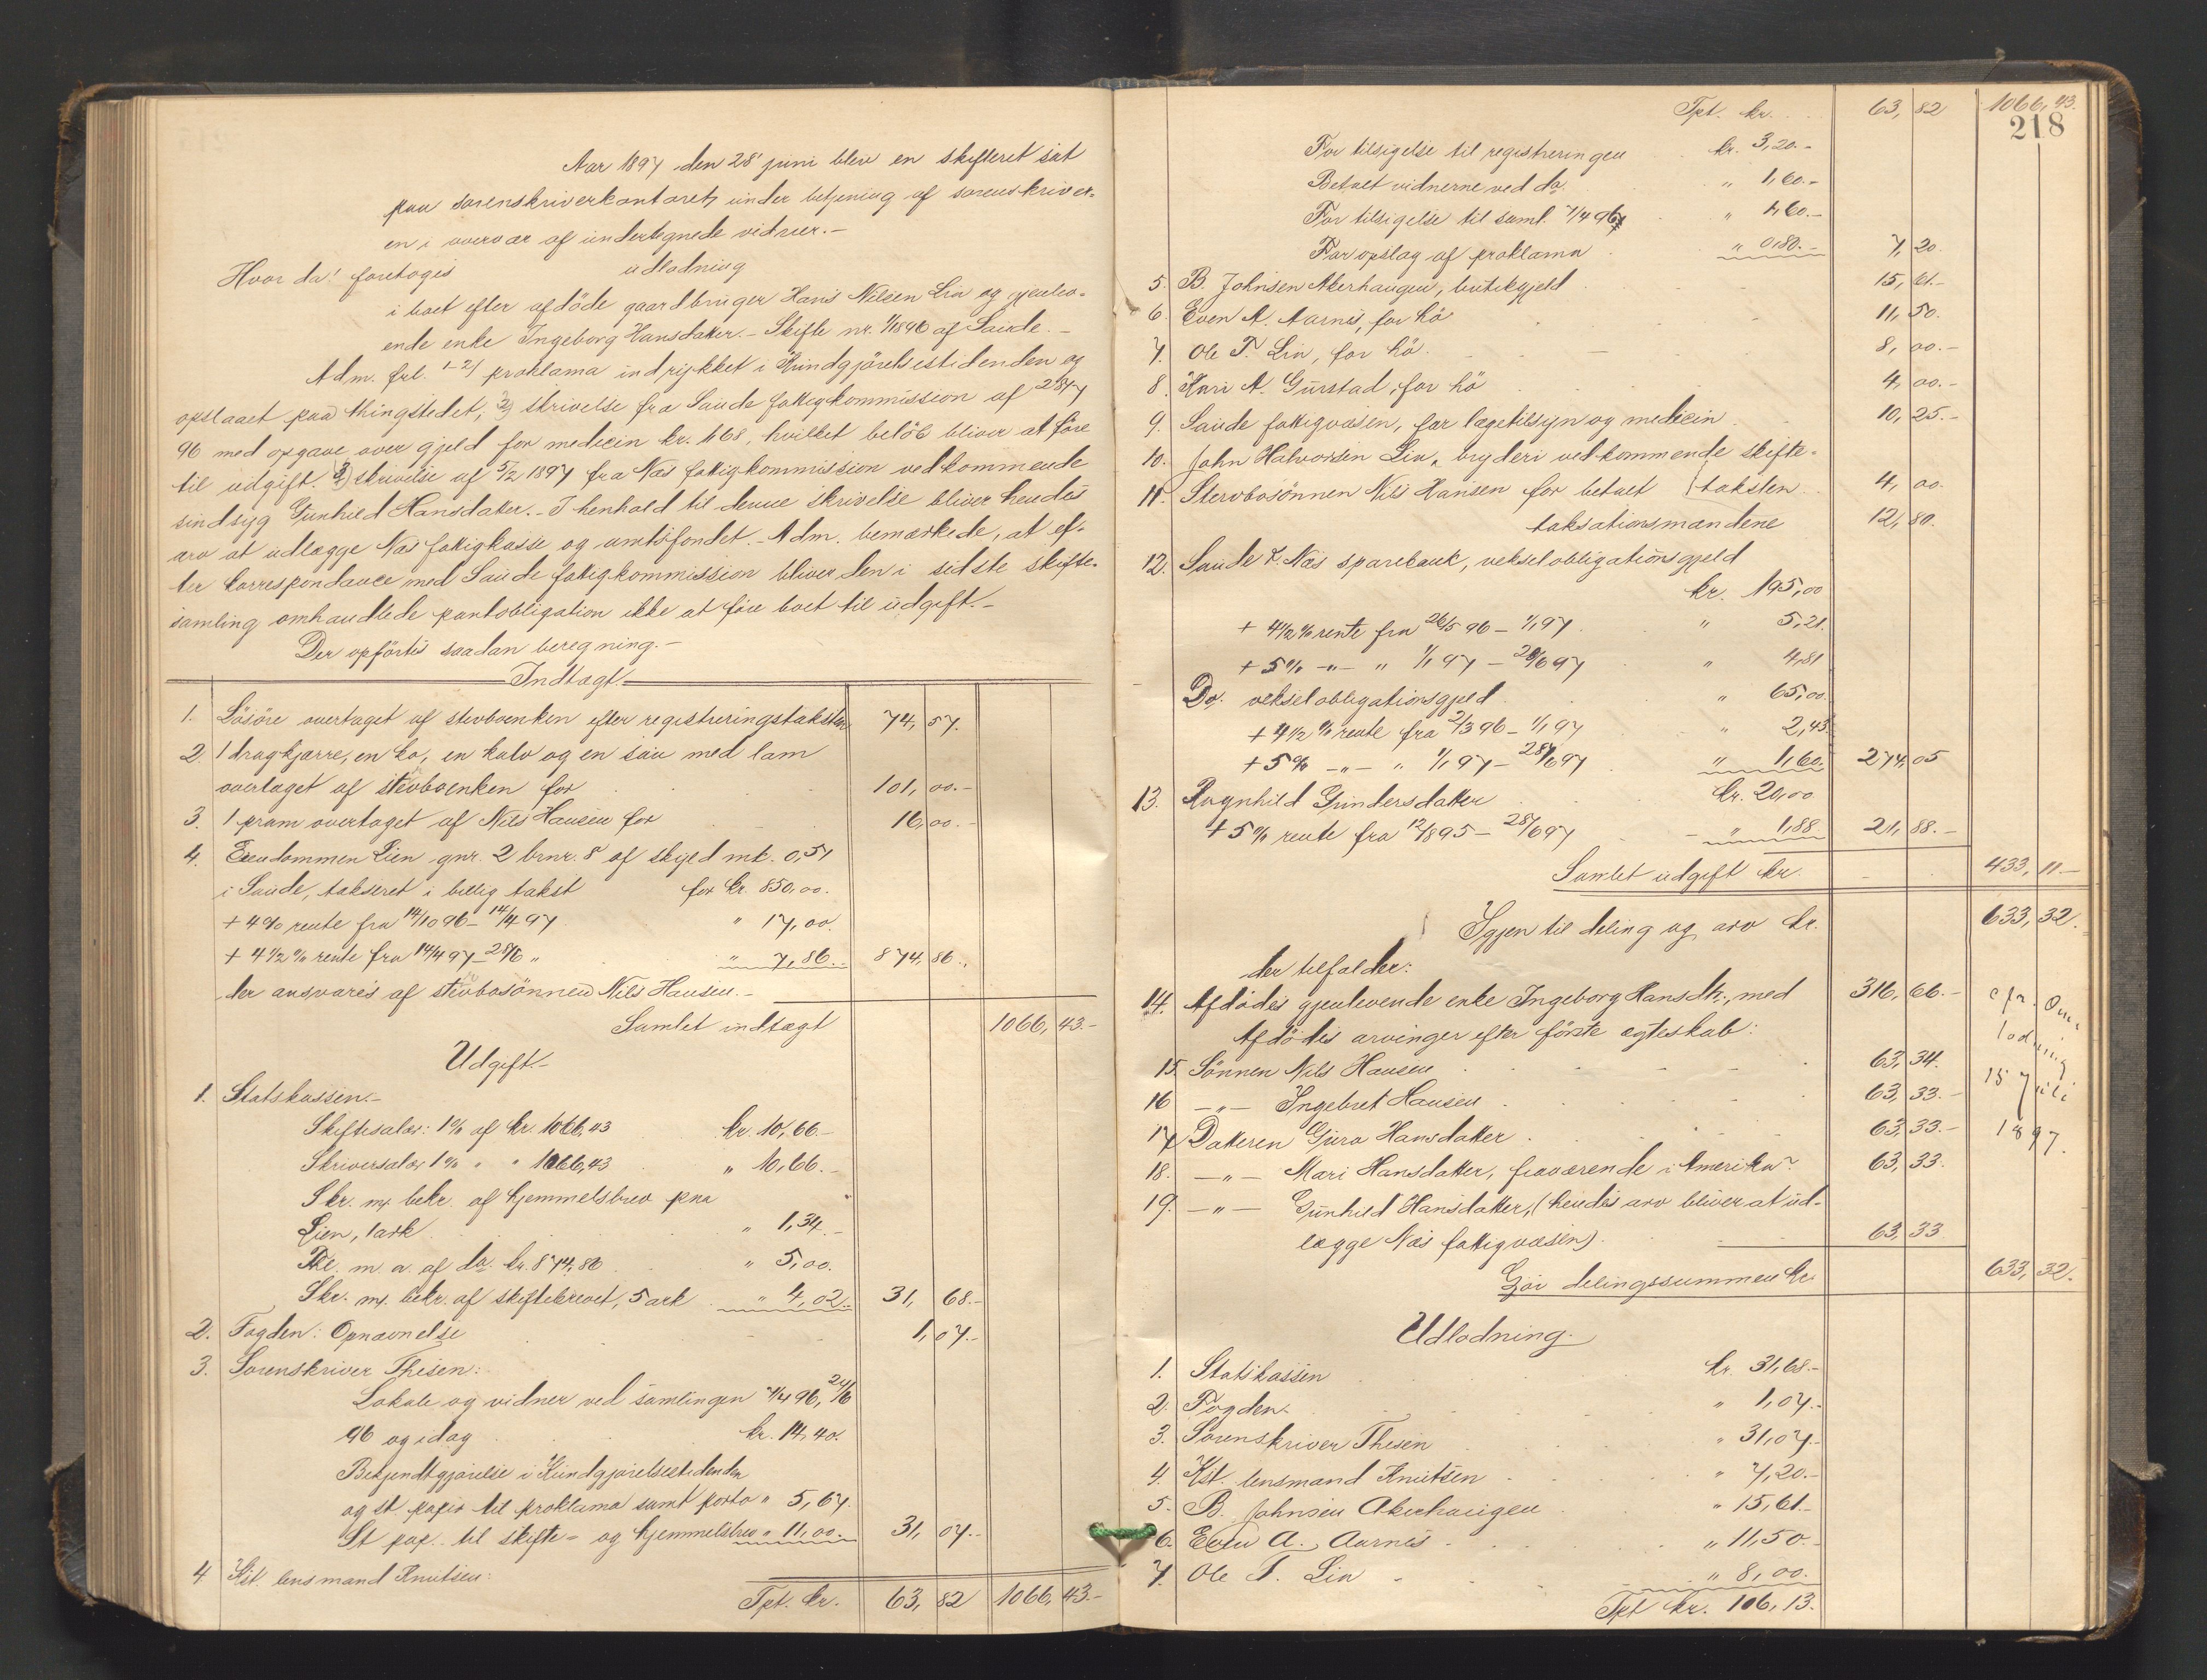 Aar 1897 den 28' juni blev en skifteret sat
paa sorenskriverkontoret, under betjening af sorenskriver-
en i overvær af undertegnede vidner.-
Hvor da' foretoges udlodning
i boet efter afdöde gaardbruger Hans Nilsen Lia og gjenlev-
ende enke Ingeborg Hansdatter.- Skifte nr. 1/1896 af Saude.-
Adm. frl. 1-2) proklama indrykket i Kundgjörelsestidenden og
opslaaet paa thingstedet, 3) skrivelse fra Saude fattigkommission af 28/7
96 med opgave over gjeld for medicin kr. 4.68, hvilket belöb bliver at före
til udgift. 4) skrivelse af 5/2 1897 fra Næs fattigkommission vedkommende
sindsyg Gunhild Hansdatter.- I henhold til denne skrivelse bliver hendes
arv at udlægge Næs fattigkasse og amtsfondet.- Adm. bemærkede, at ef-
ter korrespondance med Saude fattigkommission bliver den i sidste skifte-
samling omhandlede pantobligation ikke at före boet til udgift.-
Der opförtes saadan beregning.-
Indtægt.
1. Lösöre overtaget af stervboenken efter registreringstaksten 74,57.
2. 1 dragkjærre, en ko, en kalv og en sau med lam
overtaget af stervboenken for 101,00.-
3. 1 pram overtaget af Nils Hansen for 16,00.-
4. Eiendommen Lien gnr. 2 brnr. 8 af skyld mk. 0,51
i Saude, takseret i billig takst for kr. 850,00.
+ 4% rente fra 14/10 96 - 14/4 97 " 17,00.
+ 4 1/2 % rente fra 14/4 97 - 28/6 " " 7,86.- 874,86.
der ansvares af stervbosönnen Nils Hansen.-
Samlet indtægt 1066,43.-
Udgift.-
1. Statskassen.-
Skiftesalær: 1% af kr. 1066,43 kr. 10,66.-
Skriversalær 1% " " 1066,43 " 10,66.-
Skr. m. bekr. af hjemmelsbrev paa
Lien, 1 ark " 1,34.-
m. a. af do. kr. 874,86 " 5,00.
Skr. m. bekr. af skiftebrevet, 5 ark " 4,02.- 31,68.-
2. Fogden: Opnævnelse 1,07.-
3. Sorenskriver Thesen:
Lokale og vidner ved samlingen 7/4 96, 24/6
96 og idag kr. 14,40.
Bekjendtgjörelse i Kundgjörelsestidenden
og st. papir til proklama samt porto " 5,67.
St. pap. til skifte- og hjemmelsbrev " 11,00.- 31,07.-
4 Kst. lensmand Knutsen:
Tpt. kr. 63,82 1066,43.-
Tpt. kr. 63,82 1066,43.
218
For tilsigelse til registreringen kr. 3,20.-
Betalt vidnerne ved do. " 1,60.-
For tilsigelse til saml. 7/4 96 " 1,60.-
For opslag af proklama " 0,80.- 7,20.
5. B. Johnsen Akerhaugen, butikgjeld 15,61.-
6. Even A. Aarnes, for hö 11,50.
7. Ole T. Lia, for hö 8,00.-
8. Kari A. Gurstad, for hö 4,00.-
9. Saude fattigvæsen, for lægetilsyn og medicin 10,25.-
10. John Halvorsen Lia, bryderi vedkommende skifte-
taksten 4,00.
11. Stervbosönnen Nils Hansen for betalt
taksationsmændene 12,80.
12. Saude & Næs sparebank, vekselobligationsgjeld
kr. 195,00
+ 4 1/2 % rente fra 26/5 96 - 1/1 97 " 5,21.
+ 5% -"- " 1/1 97 - 28/6 97 " 4,81
Do. vekselobligationsgjeld " 65,00.
+ 4 1/2 % rente fra 2/3 96 - 1/1 97 " 2,43
+ 5% -"- " 1/1 97 - 28/6 97 " 1,60. 274,05
13. Ragnhild Gundersdatter kr. 20,00
+ 5% rente fra 12/8 95 - 28/6 97 " 1,88 21,88.-
Samlet udgift kr. 433,11-
Igjen til deling og arv kr. 633,32.
der tilfalder:
14. Afdödes gjenlevende enke Ingeborg Hansdtr., med 316,66.-
Afdödes arvinger efter förste ægteskab:
15. Sönnen Nils Hansen 63,34.
16 -"- Ingebret Hansen 63,33.-
17 Datteren Guro Hansdatter 63,33.-
18. -"- Mari Hansdatter, fraværende i Amerika 63,33.
19. -"- Gunhild Hansdatter, (hendes arv bliver at ud-
lægge Næs fattigvæsen) 63,33
cfr. Om-
lodning
15 juli
1897.
Gör delingssummen kr. 633,32.
Udlodning.
1. Statskassen kr. 31,68.-
2. Fogden " 1,07.-
3. Sorenskriver Thesen " 31,07.-
4. Kst. lensmand Knutsen " 7,20.-
5. B. Johnsen Akerhaugen " 15,61.-
6. Even A. Aarnes " 11,50.
7. Ole T. Lia " 8,00.
Tpt kr. 106,13.